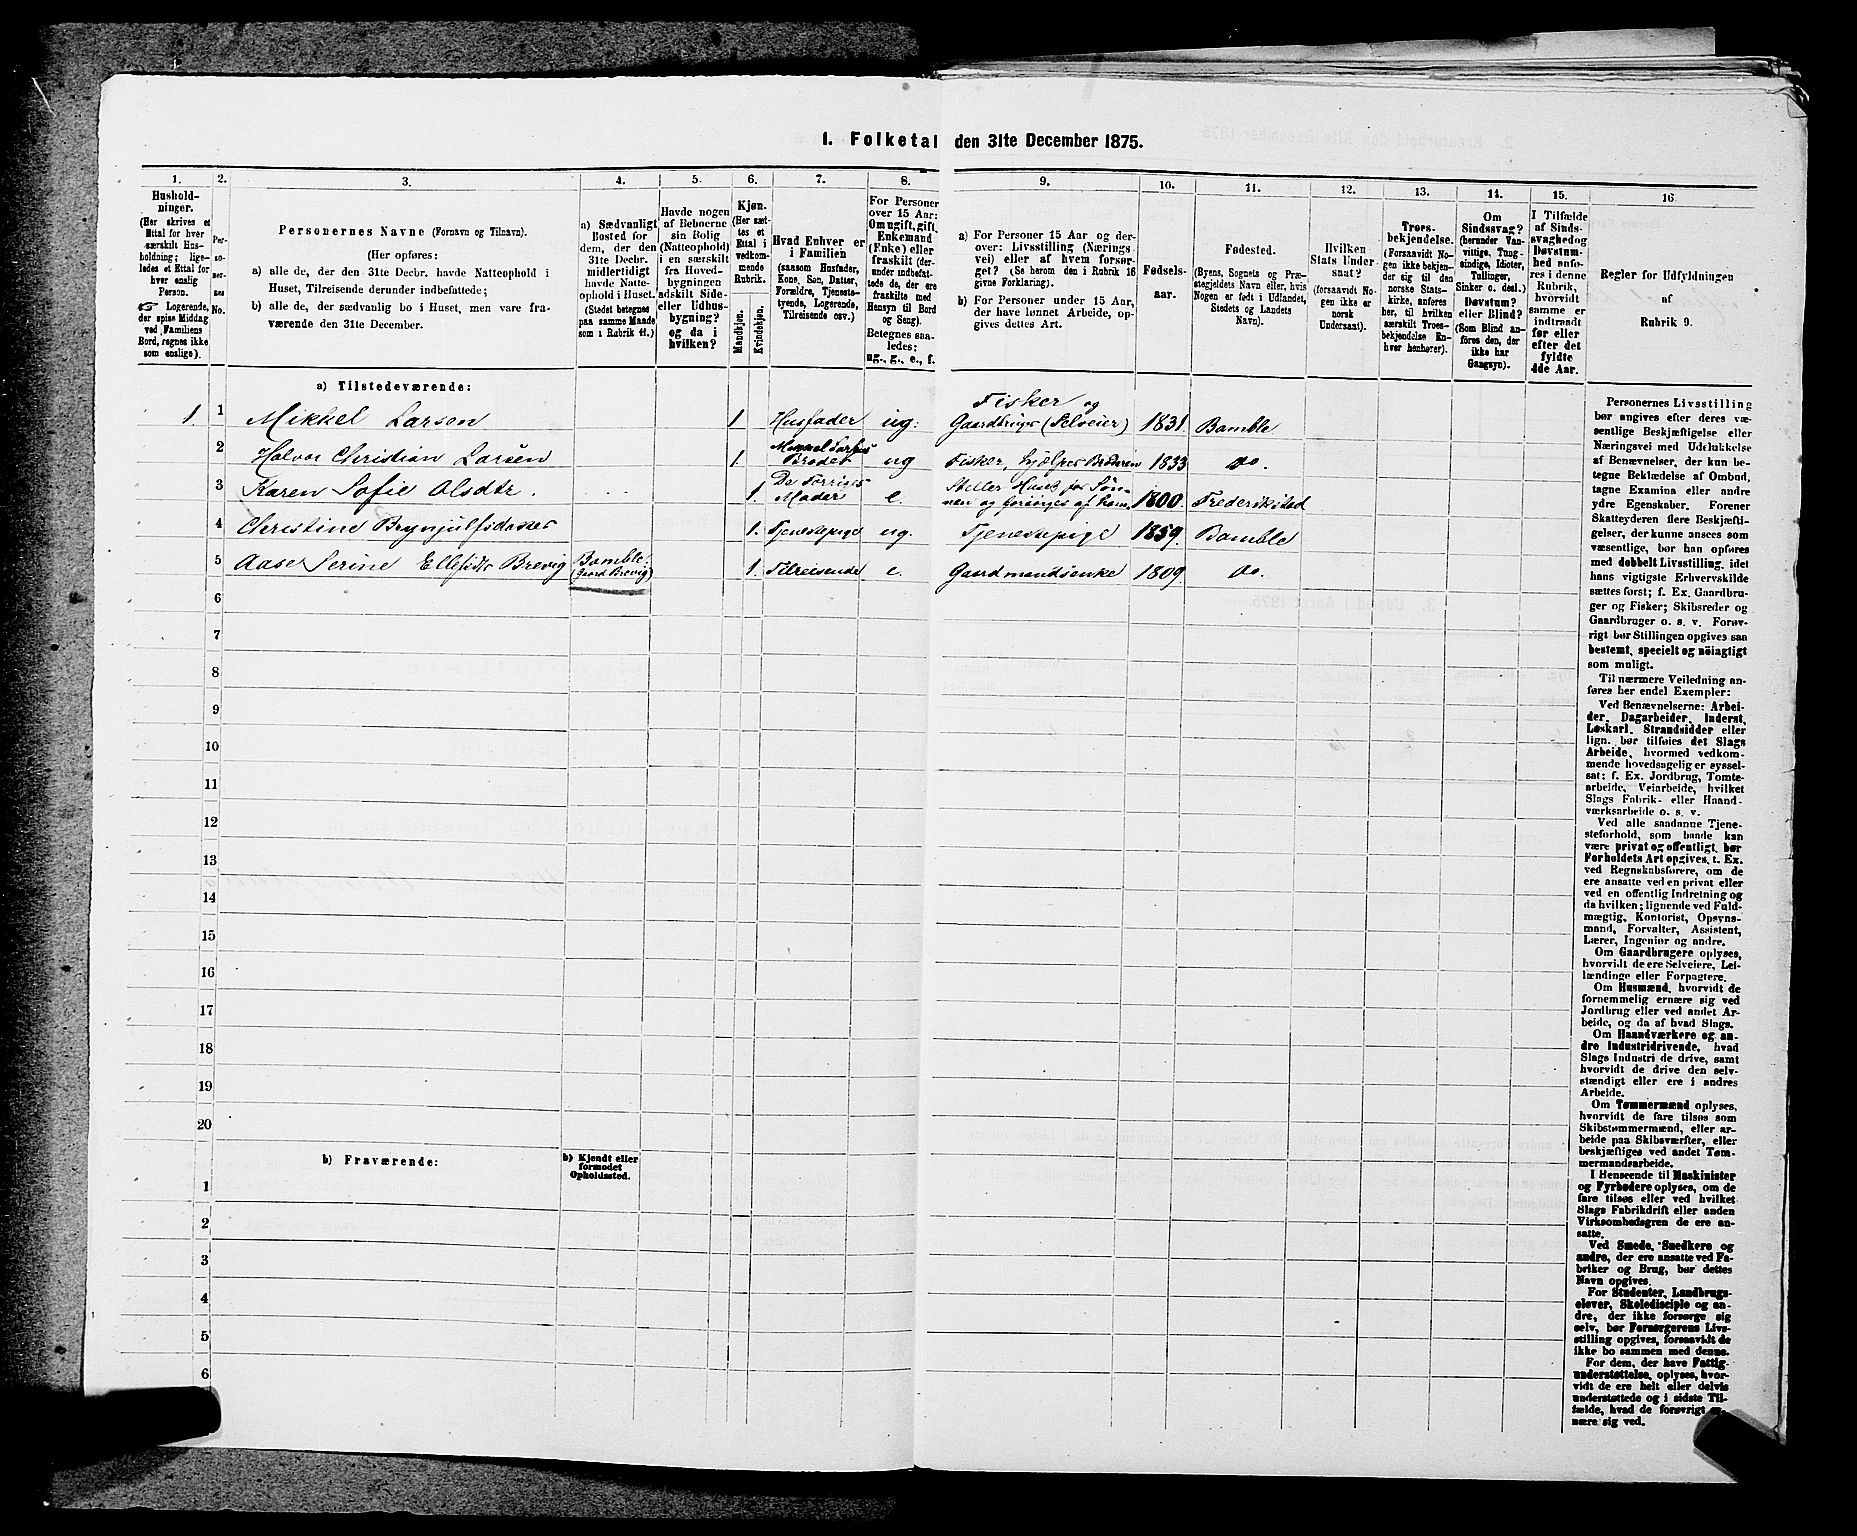 1. Folketal den 31te December 1875.
1.
Hushold-
ninger.
(Her skrives et
Ettal for hver
særskilt Hus-
holdning; lige-
ledes et Ettal for
hver enslig
Person.
☞ Logerende,
der spise Middag
ved Familiens
Bord, regnes ikke
som enslige).
2.
Per-
so-
ner-
nes
No.
3.
Personernes Navne (Fornavn og Tilnavn).
(Her opføres:
a) alle de, der den 31te Decbr. havde Natteophold i
Huset, Tilreisende derunder indbefattede;
b) alle de, der sædvanlig bo i Huset, men vare fra-
værende den 31te December.
4.
a) Sædvanligt
Bosted for
dem, der den
31te Decbr.
midlertidigt
havde Natte-
ophold i Huset.
(Stedet betegnes
paa samme Maade
som i Rubrik 11.)
5.
Havde nogen
af Beboerne
sin Bolig
(Natteophold)
i en særskilt
fra Hoved-
bygningen
adskilt Side-
eller Udhus-
bygning?
og da i
hvilken?
6.
Kjøn.
(Her sæt-
tes et
Ettal i
vedkom-
mende
Rubrik.
Mandkjøn.
Kvindekjøn.
7.
Hvad Enhver er
i Familien
(saasom Husfader,
Kone, Søn, Datter,
Forældre, Tjeneste-
tyende, Logerende,
Tilreisende osv.)
8.
For Personer
over 15 Aar:
Om ugift, gift,
Enkemand
(Enke) eller
fraskilt (der-
under indbefat-
tede de, der ere
fraskilte med
Hensyn til Bord
og Seng).
Betegnes saa-
ledes:
ug., g., e., f.
9.
a) For Personer 15 Aar og der-
over: Livsstilling (Nærings-
vei) eller af hvem forsør-
get? (Se herom den i Rubrik 16
givne Forklaring).
b) For Personer under 15 Aar,
der have lønnet Arbeide, op-
gives dettes Art.
10.
Fødsels-
aar.
11.
Fødested.
(Byens, Sognets og Præ-
stegjeldets Navn eller, hvis
Nogen er født i Udlandet,
Stedets og Landets
Navn).
12.
Hvilken
Stats Under
saat?
(forsaavidt No-
gen ikke er
norsk
Undersaat).
13.
Troes-
bekjendelse.
(Forsaavidt No-
gen ikke bekjen-
der sig til den
norske Stats-
kirke, anføres
her, til hvilken
særskilt Troes-
bekjendelse En-
hver henhører).
14.
Om
Sindssvag?
(herunder Van-
vittige, Tung-
sindige, Idioter,
Tullinger,
Sinker o. desl.)
Døvstum?
eller Blind?
(Som Blind an-
føres den, der
ikke har
Gangsyn).
15.
I Tilfælde
af Sinds-
svaghed og
Døvstum-
hed anfø-
res i denne
Rubrik,
hvorvidt
samme er
indtraadt
før eller
efter det
fyldte
4de Aar.
16
Regler for Udfyldningen
af
Rubrik 9.
a) Tilstedeværende:
1 1 Mikkel Larsen 1 Husfader ug. Fisker og Gaardbruger (Selveier) 1831 Bamble
2 Halvor Christian Larsen 1. Mikkel Larsens Broder ug Fisker, hjælper Broderen 1833 Do.
3 Karen Sofie Olsdtr. 1. De Forriges Moder e. Steller Huset for Søn-
nen og forsørges af ham. 1800. Frederikstad
4 Christine Brynjulfsdatter 1. Tjenestepige ug. Tjenestepige 1859. Bamble
5 Aase Serine Ellefsdtr Brevig Bamble: (Gaard Brevig) 1. Tilreisende e. Gaardmandsenke 1809 Do.
6
7
8
9
10
11
12
13
14
15
16
17
18
19
20
b) Fraværende:
b) Kjendt eller
formodet
Opholdssted.
1
2
3
4
5
6
Personernes Livsstilling
bør angives efter deres væ-
sentlige Beskjæftigelse eller
Næringsvei med Udelukkelse
af Benævnelser, der kun be-
tegne Beklædelse af Ombud,
tagne Examina eller andre
ydre Egenskaber. Forener
Skatteyderen flere Beskjæfti-
gelser, der kunne ansees som
væsentlige, bør han opføres
med dobbelt Livsstilling, idet
hans vigtigste Erhvervskilde
sættes først; f. Ex. Gaardbru-
ger og Fisker; Skibsreder og
Gaardbruger o. s. v. Forøv-
rigt bør Stillingen opgives saa
bestemt, specielt og nöiagtigt
som muligt.
Til nærmere Veiledning an-
føres her endel Exempler:
Ved Benævnelserne: Arbei-
der, Dagarbeider, Inderst,
Løskarl, Strandsidder eller
lign. bør tilføies det Slags
Arbeide, hvormed vedkom-
mende hovedsagelig er syssel-
sat; f. Ex. Jordbrug, Tomte-
arbeide, Veiarbeide, hvilket
Slags Fabrik- eller Haand-
værksarbeide o. s. v.
Ved alle saadanne Tjene-
steforhold, som baade kan
være privat og offentligt, bør
Forholdets Art opgives, t. Ex.
ved Regnskabsførere, om de
ere ansatte ved en privat eller
ved en offentlig Indretning og
da hvilken; lignende ved Fuld-
mægtig, Kontorist, Opsyns-
mand, Forvalter, Assistent,
Lærer, Ingeniør og andre.
Om Gaardbrugere oplyses,
hvorvidt de ere Selveiere, Lei-
lændinge eller Forpagtere.
Om Husmænd, hvorvidt de
fornemmelig ernære sig ved
Jordbrug eller ved andet Ar-
beide, og da af hvad Slags.
Om Haandværkere og an-
dre Industridrivende, hvad
Slags Industri de drive, samt
hvorvidt de drive den selv-
stændigt eller ere i andres
Arbeide.
Om Tømmermænd oplyses,
hvorvidt de fare tilsøs som
Skibstømmermænd, eller ar-
beide paa Skibsværfter, eller
beskjæftiges ved andet Tøm-
mermandsarbeide.
I Henseende til Maskinister
og Fyrbødere oplyses, om de
fare tilsøs eller ved hvilket
Slags Fabrikdrift eller anden
Virksomhedsgren de ere an-
satte.
Ved Smede, Snedkere og
andre, der ere ansatte ved Fa-
briker og Brug, bør dettes
Navn opgives.
For Studenter, Landbrugs-
elever, Skoledisciple og an-
dre, der ikke forsørge sig
selv, bør Forsørgerens Livs-
stilling opgives, forsaavidt de
ikke bo sammen med denne.
For dem, der have Fattig-
understøttelse, oplyses, hvor-
vidt de ere helt eller delvis
understøttede og i sidste Til-
fælde, hvad de forøvrigt er-
nære sig ved.